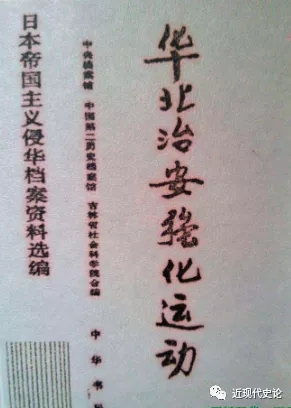 华北治安强化运动
日本帝国主义侵华档案资料选编
中央档案馆 中国第二历史档案馆 吉林省社会科学院合编
中华书局
近现代史论